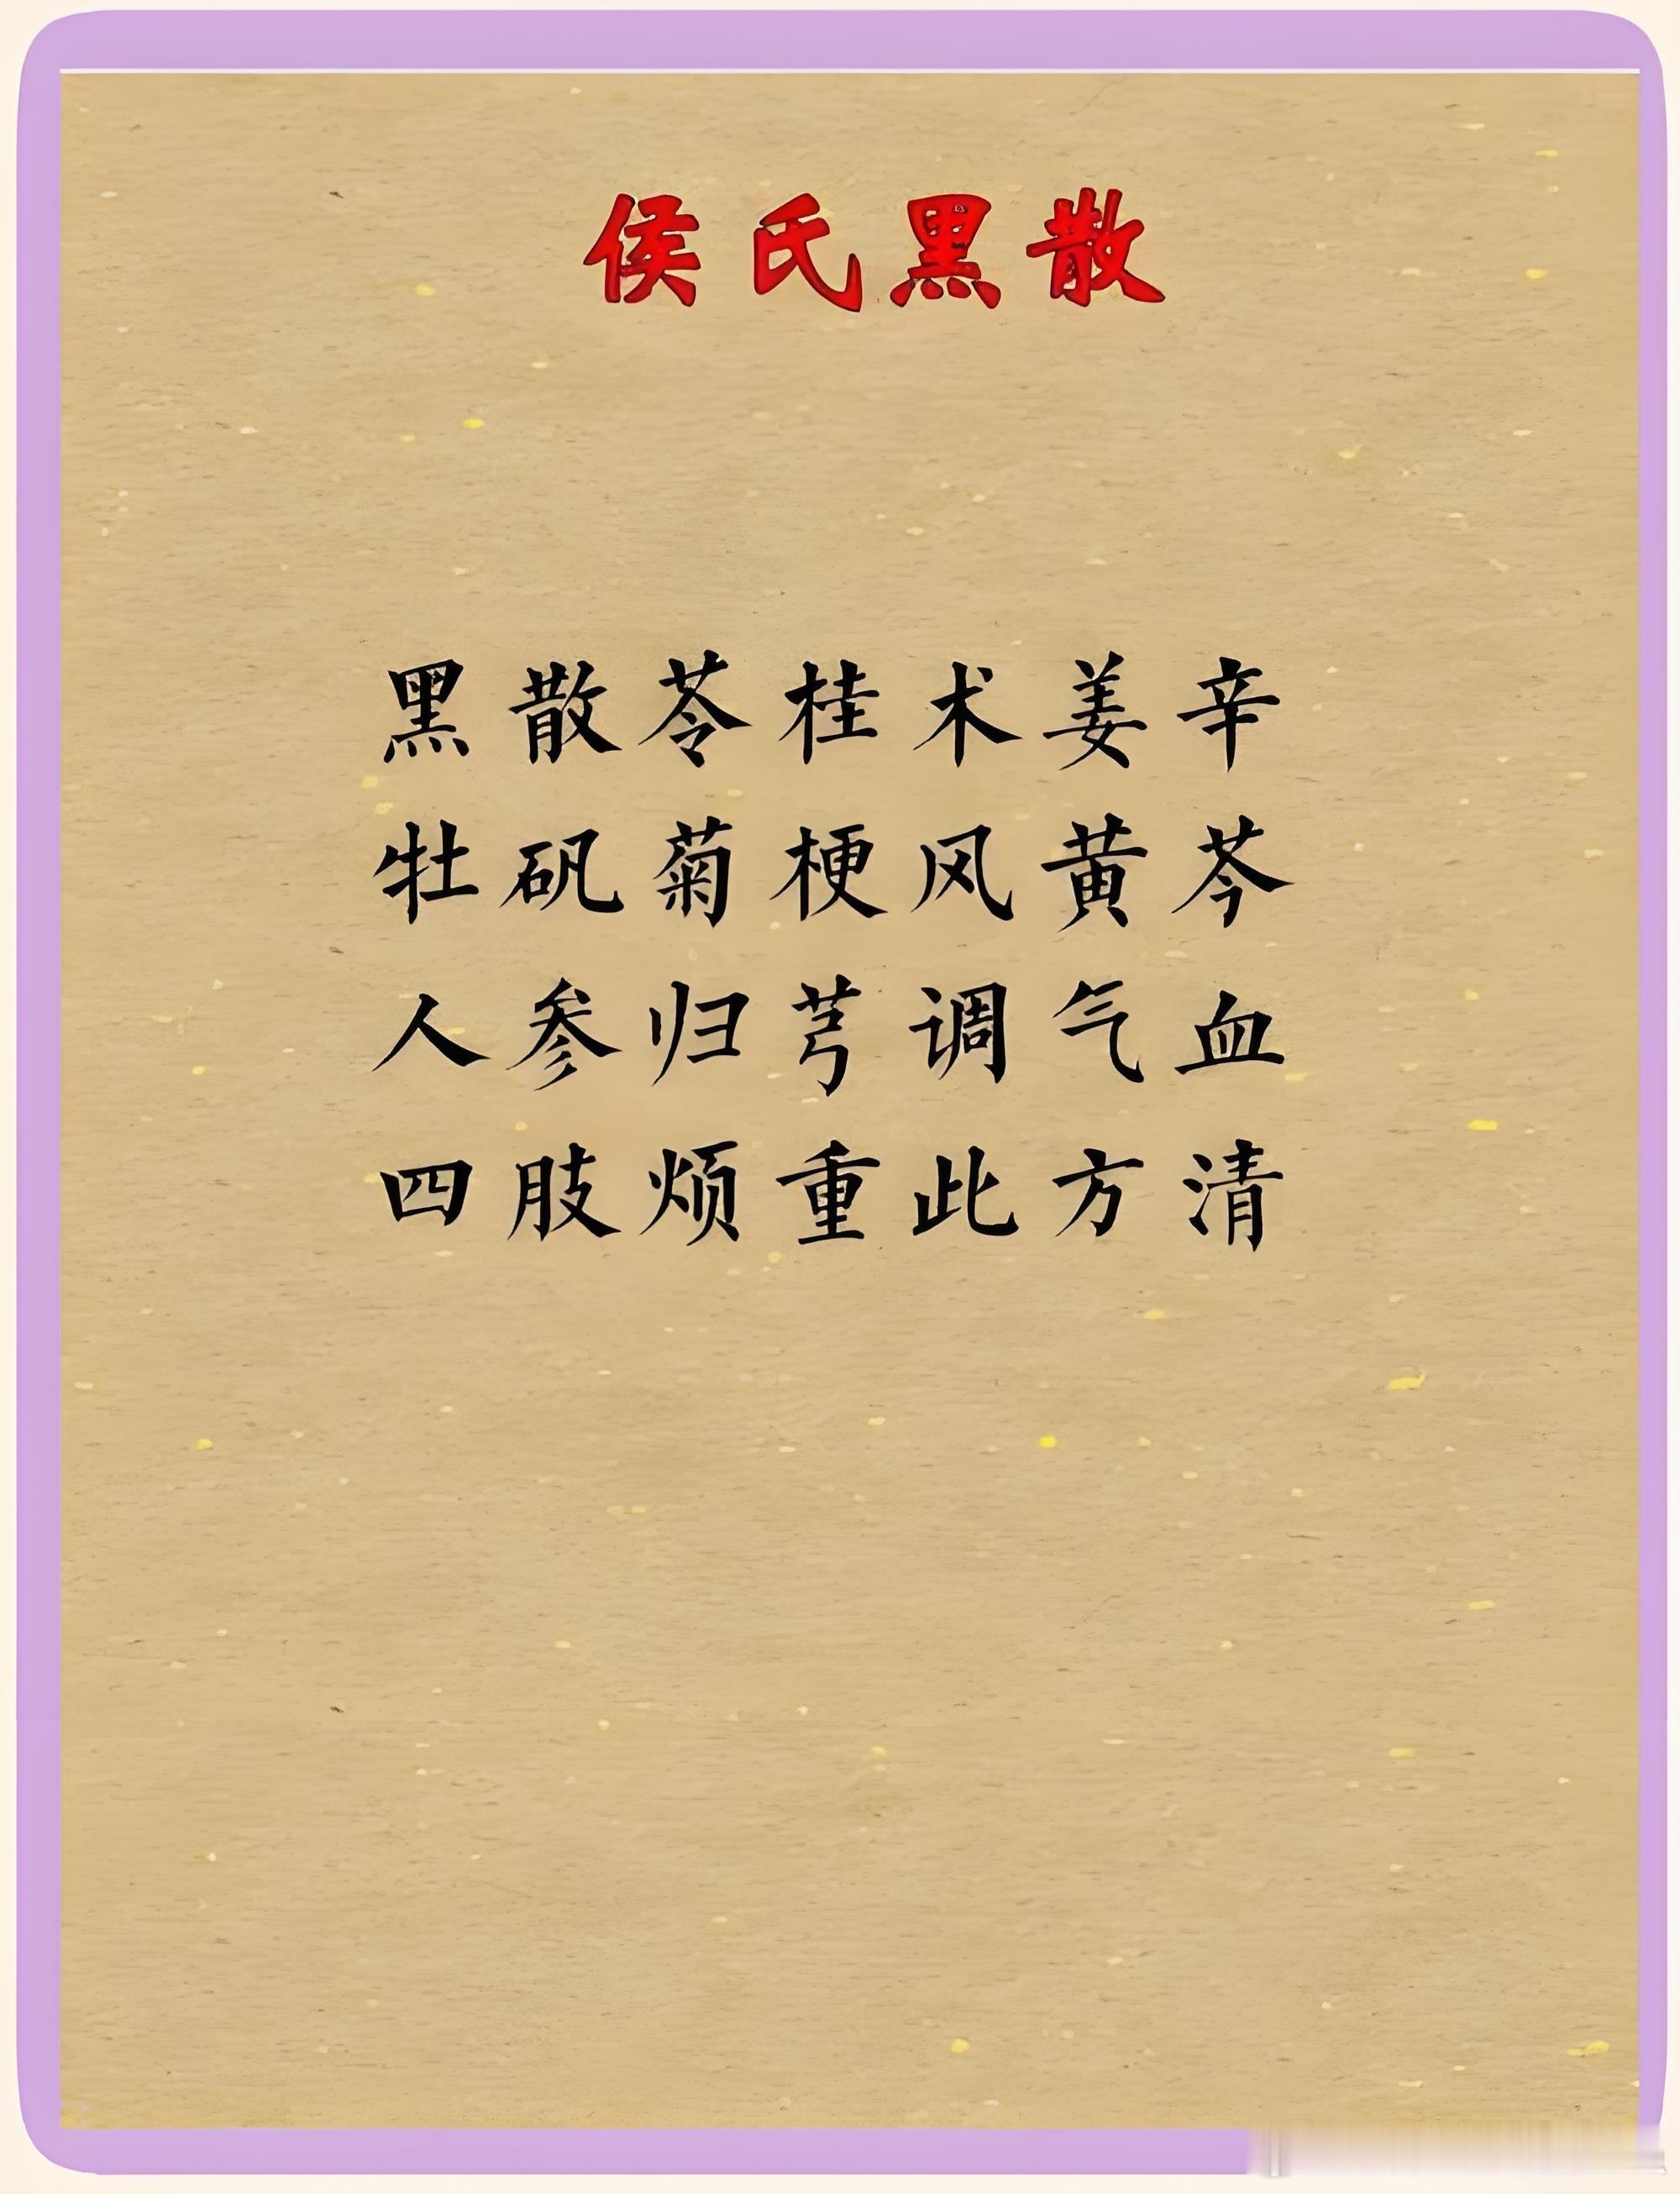 侯氏黑散
黑散苓桂术姜辛
牡矾菊梗风黄芩
人参归芎调气血
四肢烦重此方清